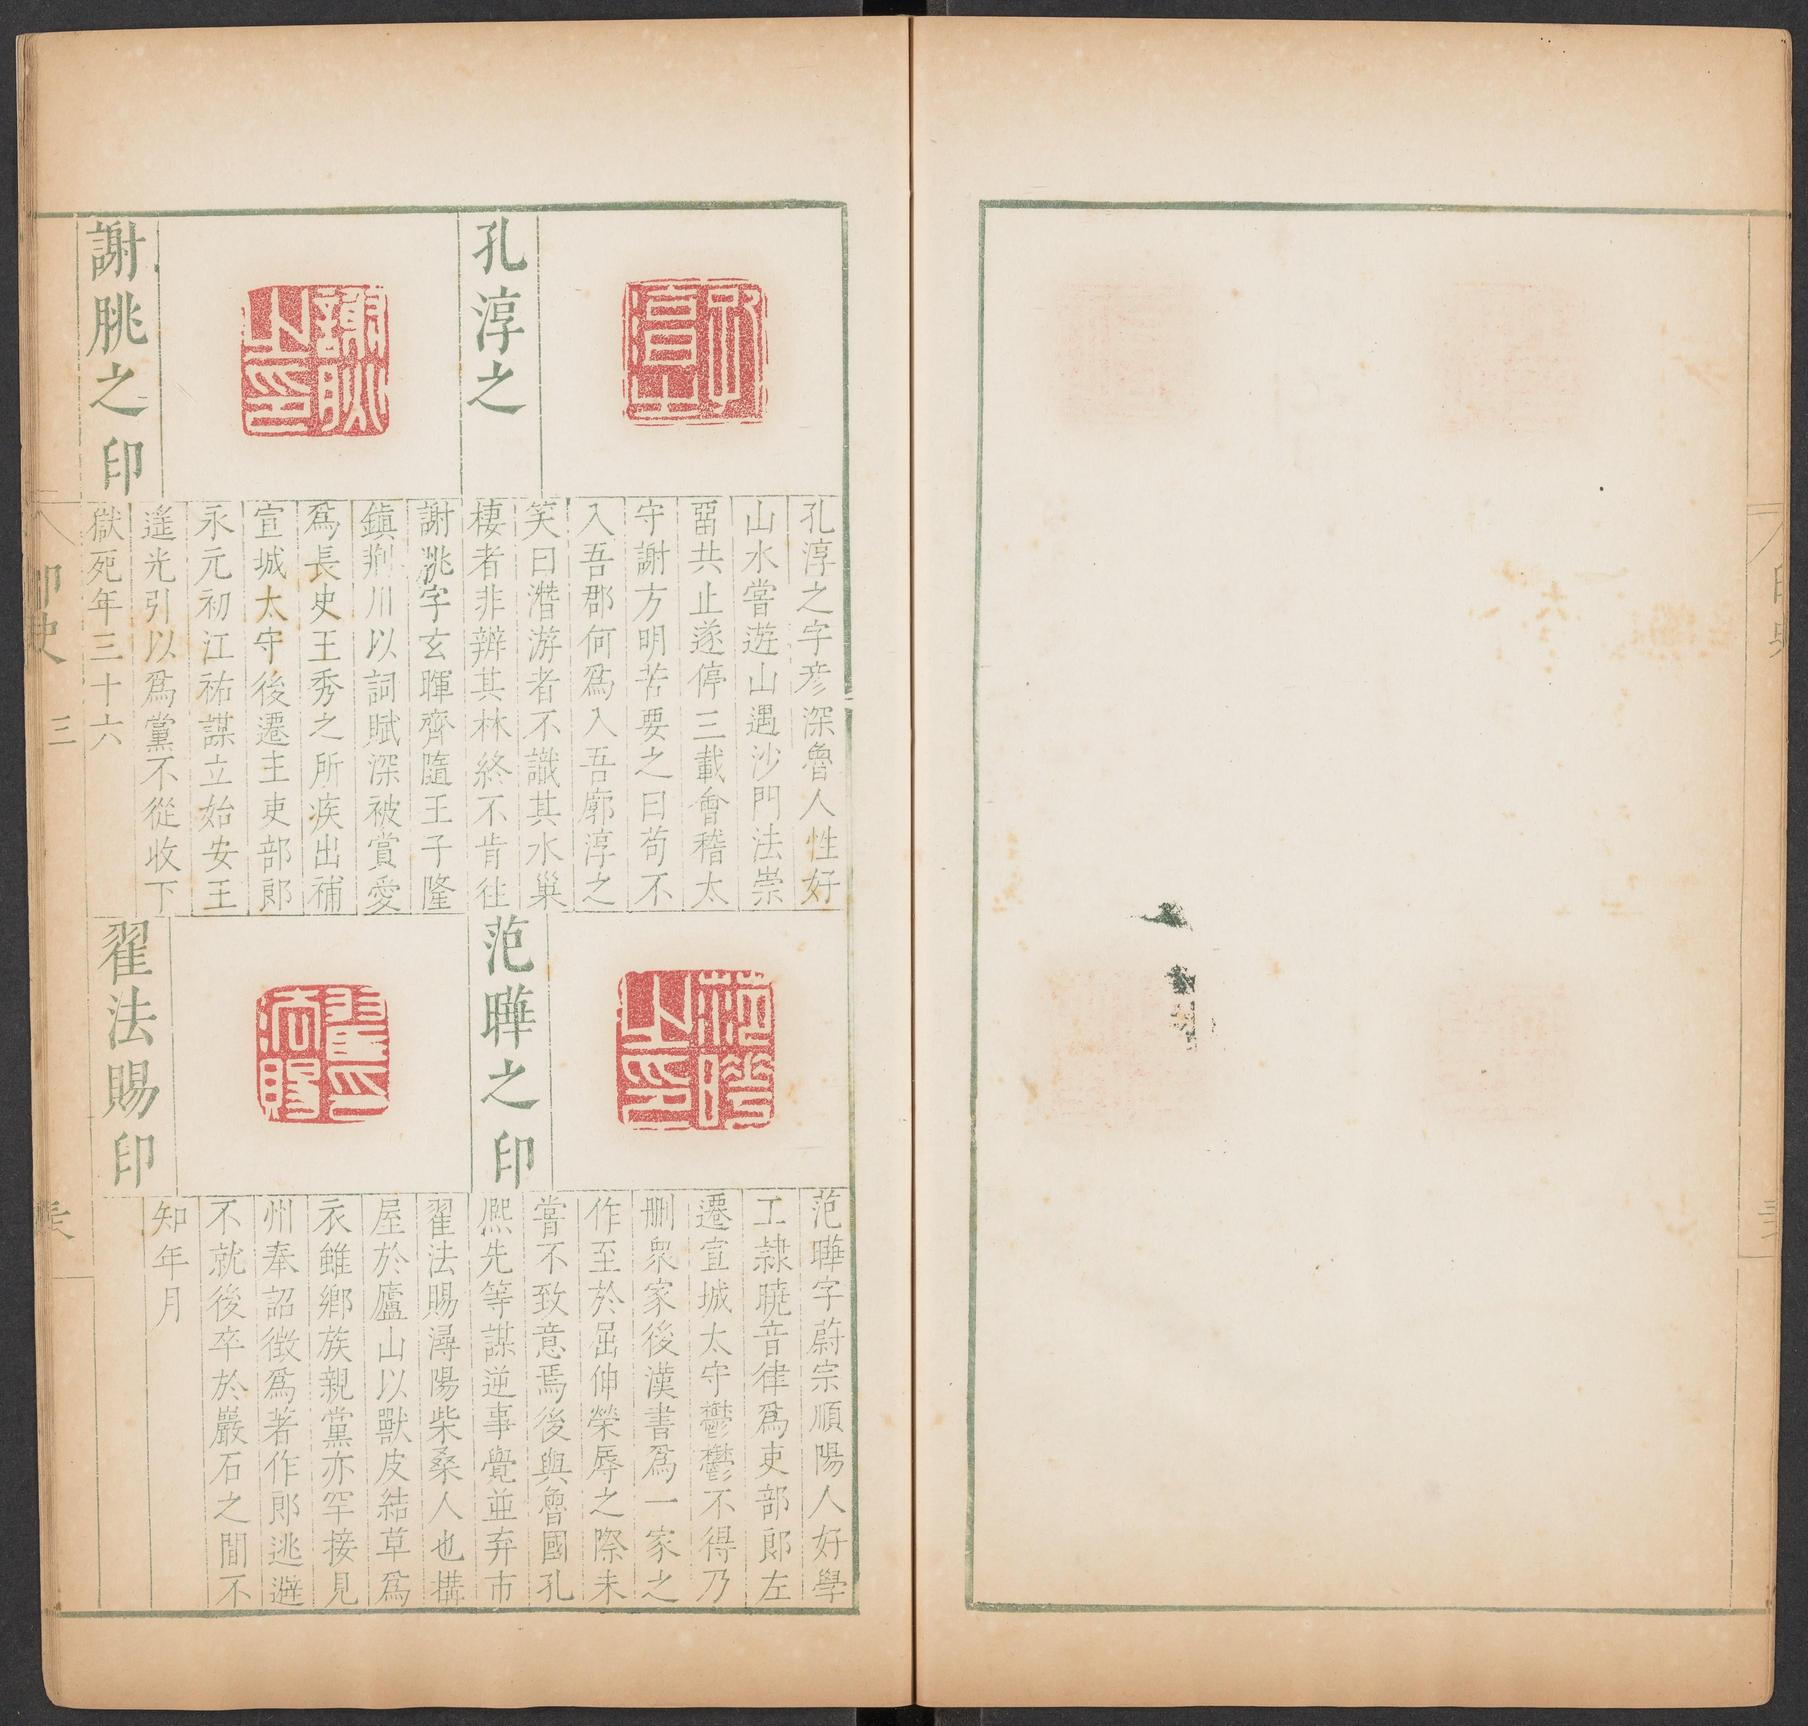 孔淳之
孔淳之字彦深魯人性好
山水嘗遊山遇沙門法崇
畱共止遂停三載會稽太
守謝方明苦要之曰苟不
入吾郡何爲入吾廓淳之
笑曰潛游者不識其水巢
棲者非辨其林終不肯往
謝朓之印
謝朓字玄暉齊隨王子隆
鎮荊川以詞賦深被賞愛
爲長史王秀之所疾出補
宣城太守後遷主吏部郎
永元初江祐謀立始安王
遥光引以爲黨不從收下
獄死年三十六
范曄之印
范曄字蔚宗順陽人好學
工隷曉音律爲吏部郎左
遷宣城太守鬱鬱不得乃
刪衆家後漢書爲一家之
作至於屈伸榮辱之際未
嘗不致意焉後與魯國孔
熙先等謀逆事覺並弃市
翟法賜印
翟法賜潯陽柴桑人也構
屋於廬山以獸皮結草爲
衣雖鄉族親黨亦罕接見
州奉詔徴爲著作郎逃避
不就後卒於巖石之間不
知年月
印史
三